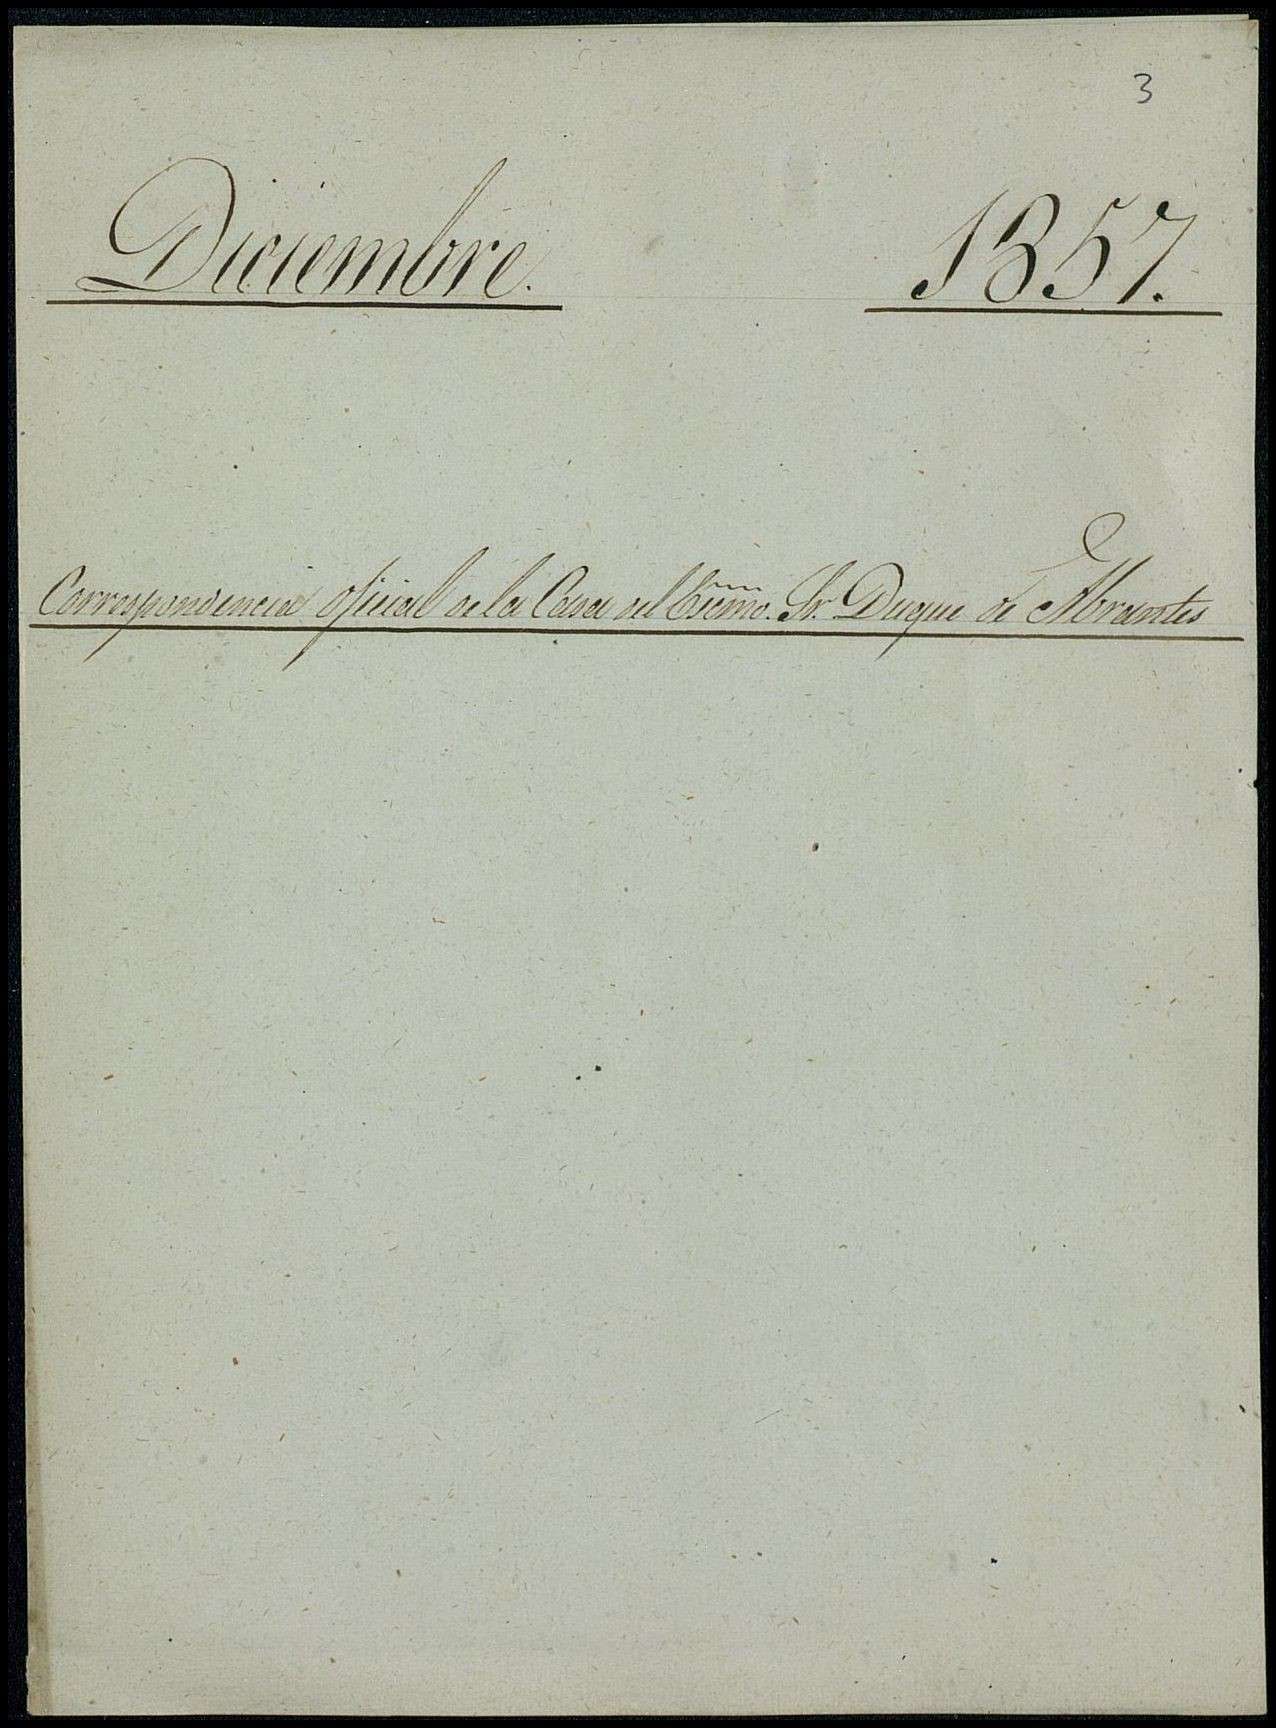 3
Diciembre. 1857.
Correspondencia oficial de la Casa del Escmo. Sr. Duque de Abrantes